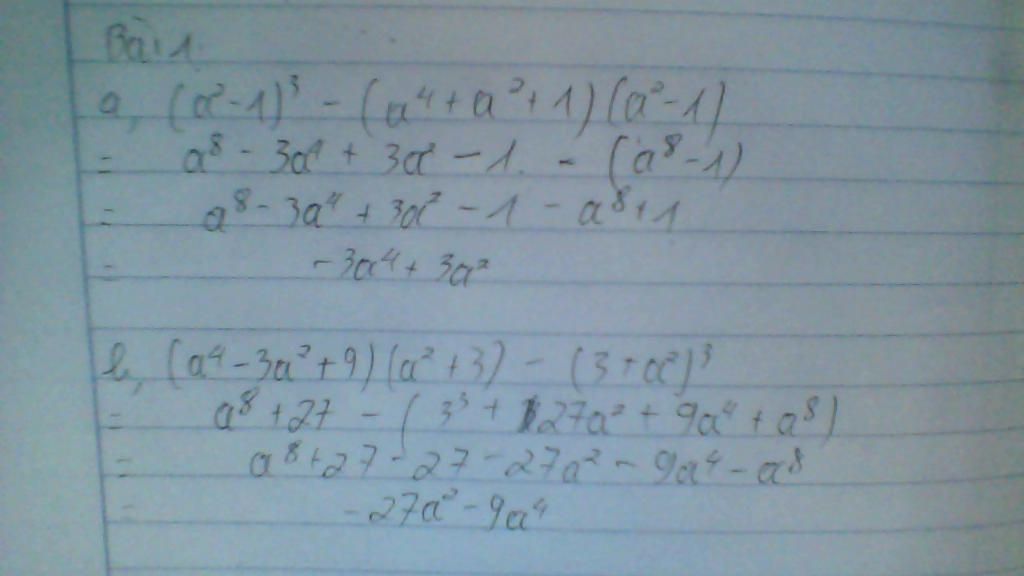 Bài 1.
a, (a² - 1)³ - (a⁴ + a² + 1)(a² - 1)
= a⁸ - 3a⁴ + 3a² - 1. - (a⁸ - 1)
= a⁸ - 3a⁴ + 3a² - 1 - a⁸ + 1
= -3a⁴ + 3a²
b, (a⁴ - 3a² + 9)(a² + 3) - (3 + a²)³
= a⁸ + 27 - (3³ + 27a² + 9a⁴ + a⁸)
= a⁸ + 27 - 27 - 27a² - 9a⁴ - a⁸
= -27a² - 9a⁴